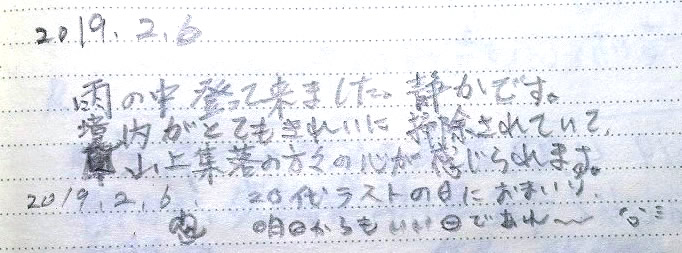 2019.2.6
雨の中登って来ました。静かです。
境内がとてもきれいに掃除されていて、
山上集落の方々の心が感じられます。
2019.2.6. 20代ラストの日におまいり、
明日からもいい日であれ〜